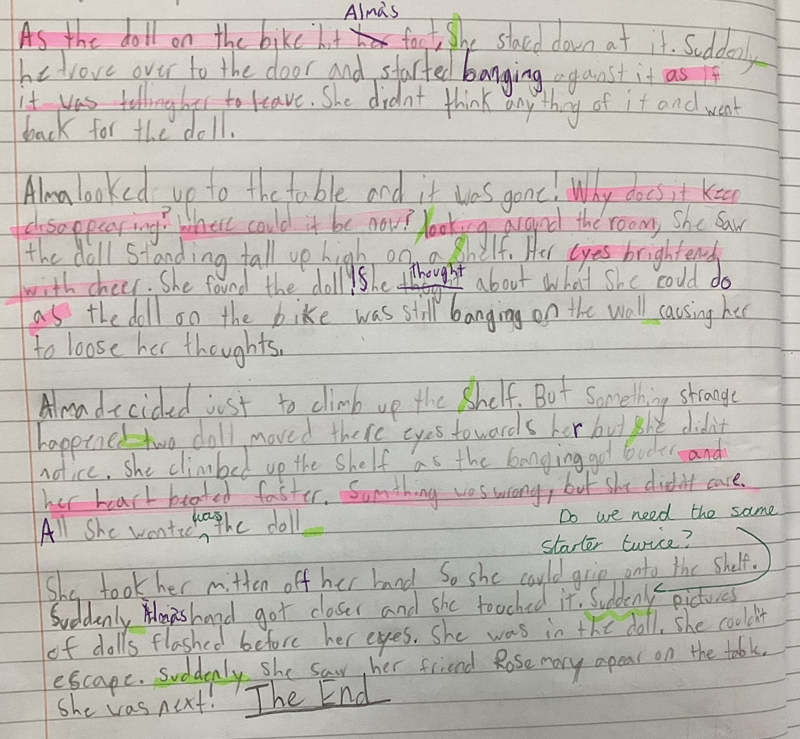 Almas
As the doll on the bike hit her foot, She stared down at it. Suddenly
he drove over to the door and started banging against it as if
it was telling her to leave. She didnt think anything of it and went
back for the doll.
Alma looked up to the table and it was gone! Why does it keep
disappearing? Where could it be now? looking around the room, She saw
the doll Standing tall up high on a Shelf. Her eyes brightend
with cheer. She found the doll! She thought about what She could do
as the doll on the bike was still banging on the wall causing her
to loose her thoughts.
Alma decided just to climb up the Shelf. But Something strange
happened two doll moved there eyes towards her but She didn't
notice. She climbed up the Shelf as the banging got louder and
her heart beated faster. Somthing was wrong, but she didn't care.
All She wanted was the doll
Do we need the same
starter twice?
She took her mitten off her hand So she could grip onto the Shelf.
Suddenly Almas hand got closer and she touched it. Suddenly pictures
of dolls flashed before her eyes. She was in the doll. She couldn't
escape. Suddenly She saw her friend Rosemary apear on the table.
She was next! The End